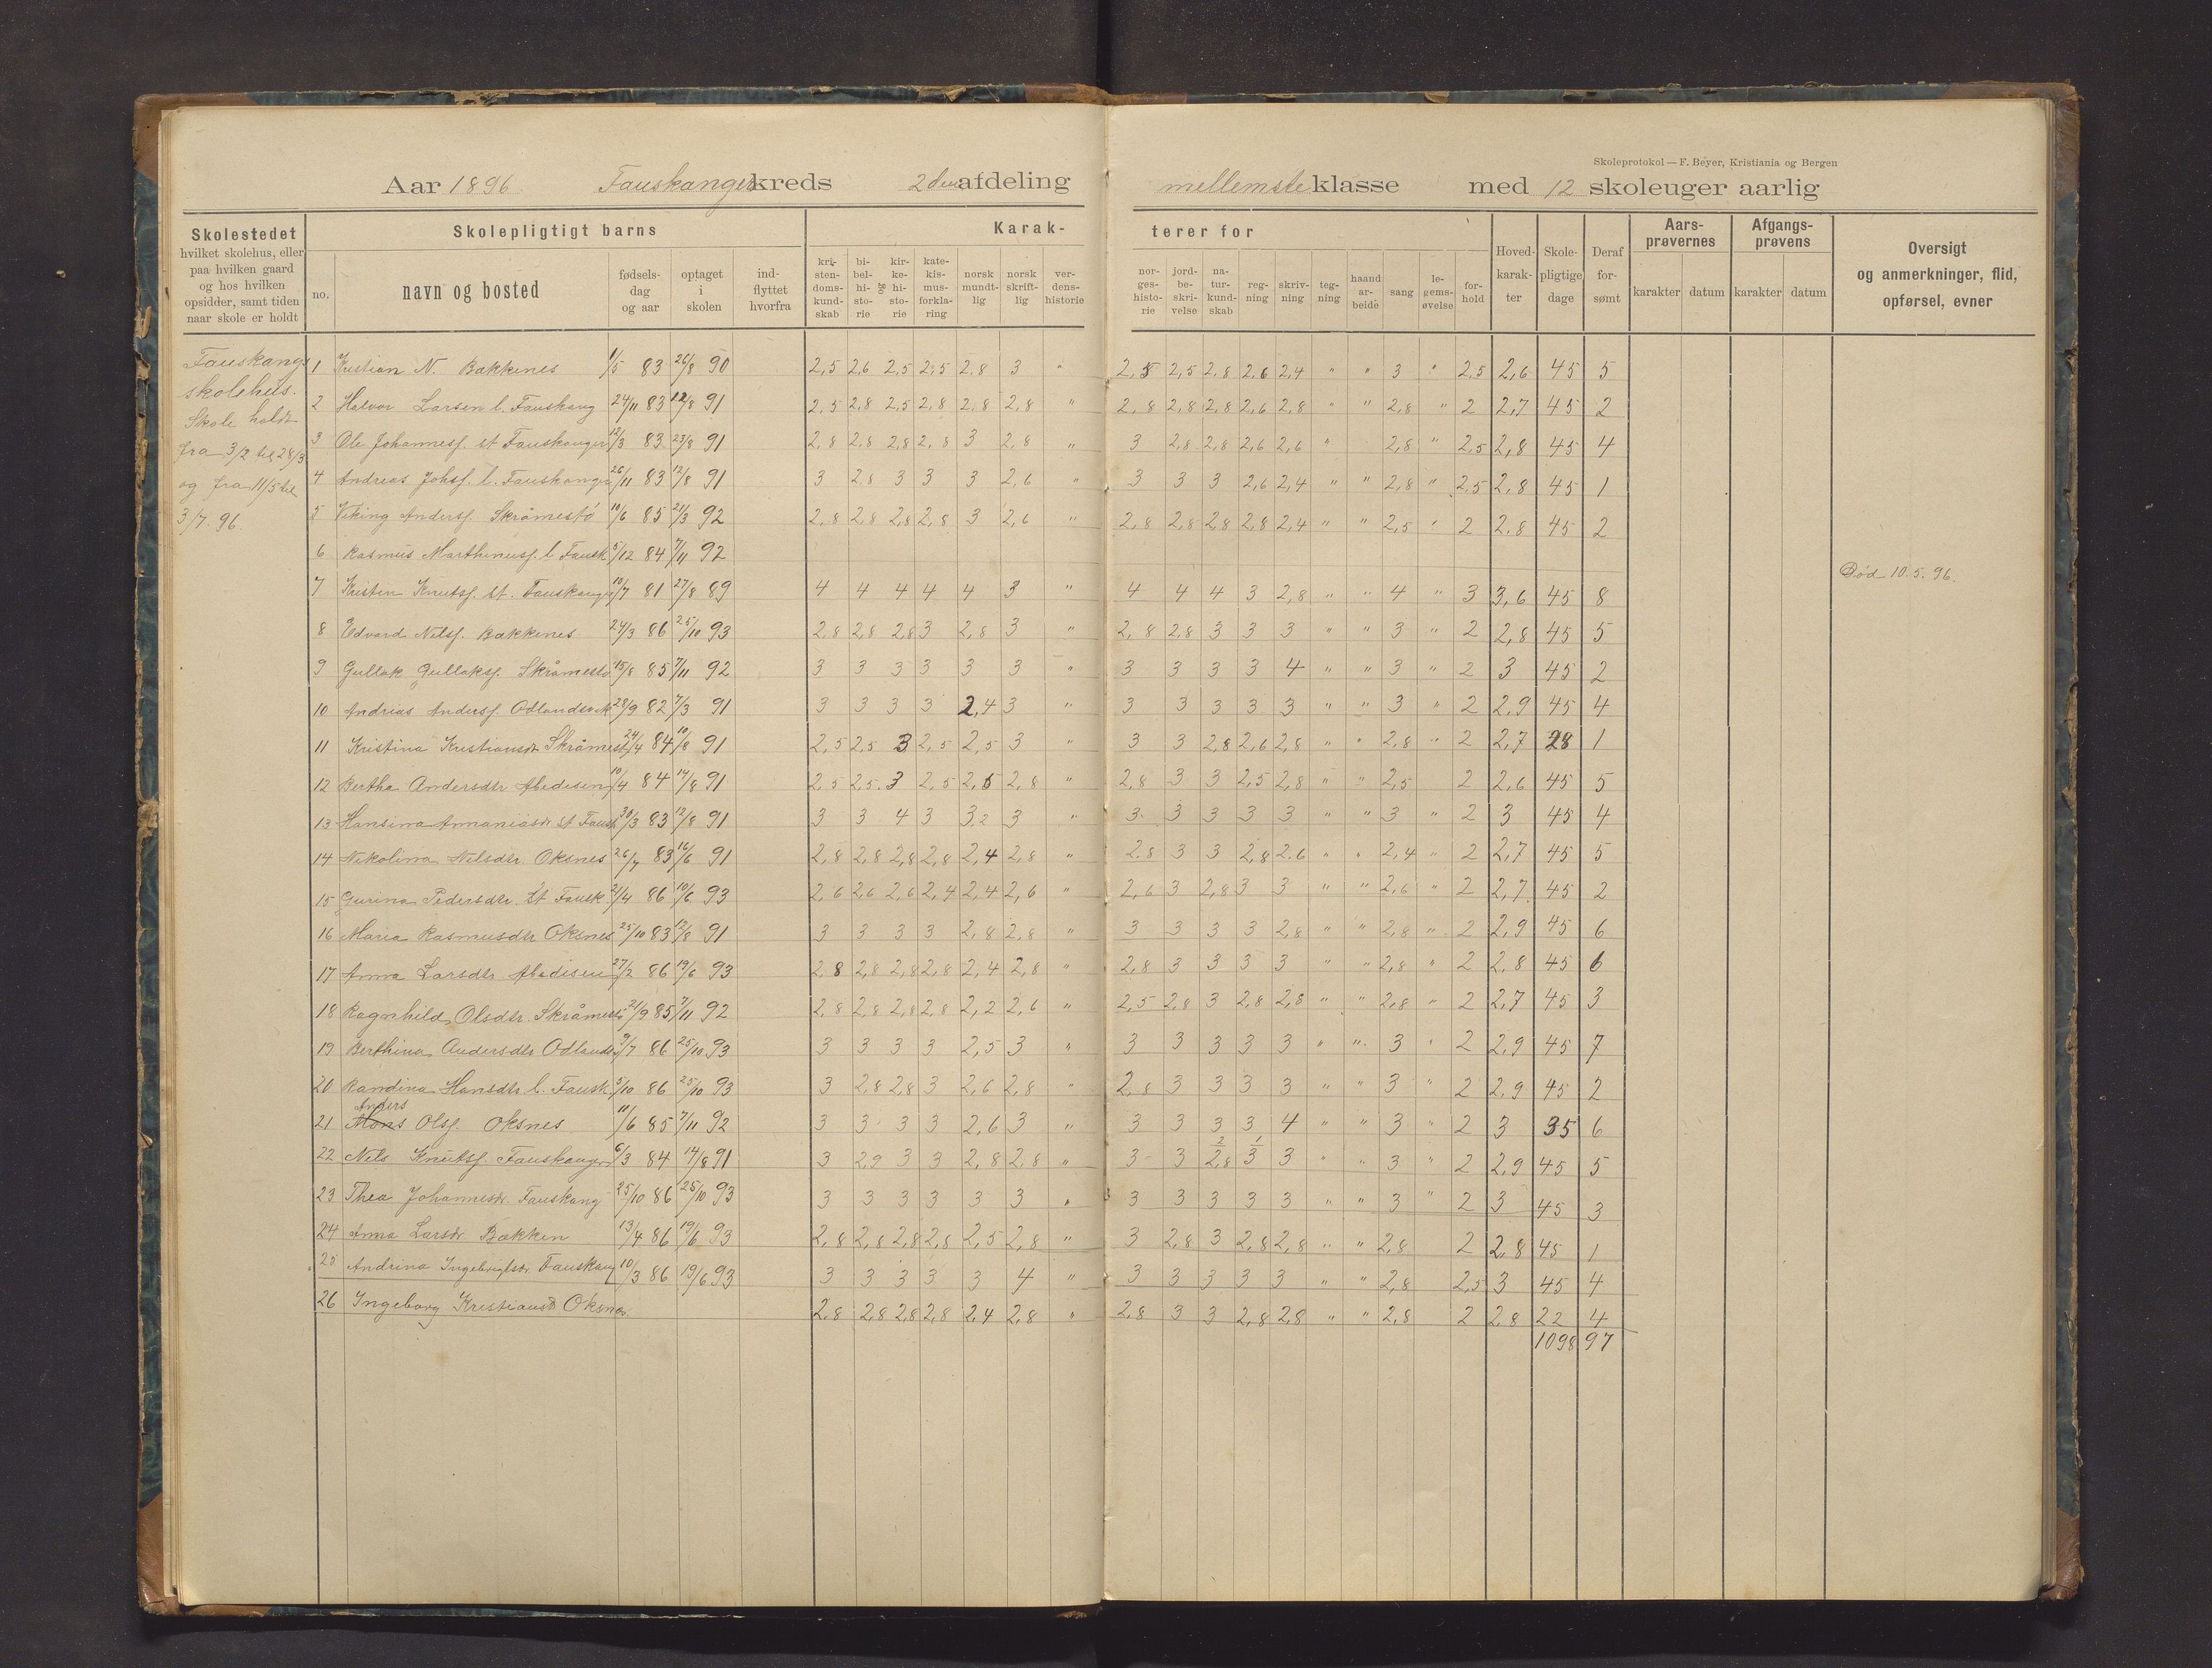 Skoleprotokol — F. Beyer, Kristiania og Bergen
Aar 1896. Fauskanger kreds 2den afdeling mellemste klasse med 12 skoleuger aarlig
Skolestedet
hvilket skolehus, eller
paa hvilken gaard
og hos hvilken
opsidder, samt tiden
naar skole er holdt
Skolepligtigt barns
no.
navn og bosted
fødsels-
dag
og aar
optaget
i
skolen
ind-
flyttet
hvorfra
Karak-
kri-
sten-
doms-
kund-
skab
bi-
bel-
hi-
sto-
rie
kir-
ke-
hi-
sto-
rie
kate-
kis-
mus-
forkla-
ring
norsk
mundt-
lig
norsk
skrift-
lig
ver-
dens-
historie
terer for
nor-
ges-
histo-
rie
jord-
be-
skri-
velse
na-
tur-
kund-
skab
reg-
ning
skriv-
ning
teg-
ning
haand
ar-
beide
sang
le-
gems-
øvelse
for-
hold
Hoved-
karak-
ter
Skole-
pligtige
dage
Deraf
for-
sømt
Aars-
prøvernes
karakter datum
Afgangs-
prøvens
karakter datum
Oversigt
og anmerkninger, flid,
opførsel, evner
Fauskang.
skolehus.
Skole holdt
fra 3/2 til 28/3
og fra 11/5 til
3/7. 96.
1 Kristian N. Bakkenes 1/5 83 26/8 90 2,5 2,6 2,5 2,5 2,8 3 " 2,8 2,5 2,8 2,6 2,4 " " 3 " 2,5 2,6 45 5
2 Halvor Larsen l. Fauskang 24/11 83 12/8 91 2,5 2,8 2,5 2,8 2,8 2,8 " 2,8 2,8 2,8 2,6 2,8 " " 2,8 " 2 2,7 45 2
3 Ole Johannesf. st Fauskanger 12/3 83 23/8 91 2,8 2,8 2,8 2,8 3 2,8 " 3 2,8 2,8 2,6 2,6 " 2,8 " 2,5 2,8 45 4
4 Andreas Johsf. l. Fauskanger 26/11 83 12/8 91 3 2,8 3 3 3 2,6 " 3 3 3 2,6 2,4 " " 2,8 " 2,5 2,8 45 1
5 Viking Andersf. Skråmestø 10/6 85 21/3 92 2,8 2,8 2,8 2,8 3 2,6 " 2,8 2,8 2,8 2,8 2,4 " " 2,5 " 2 2.8 45 2
6 Rasmus Marthinusf. l Fausk 5/12 84 7/11 92
Død 10.5.96.
7 Kristen Knutsf. st. Fauskanger 10/7 81 27/8 89 4 4 4 4 4 3 " 4 4 4 3 2,8 " " 4 " 3 3,6 45 8
8 Edvard Nilsf. Bakkenes 24/3 86 25/10 93 2,8 2,8 2,8 3 2,8 3 " 2,8 2,8 3 3 3 " " 3 " 2 2,8 45 5
9 Gullak Gullaksf. Skråmestø 15/8 85 7/11 92 3 3 3 3 3 3 " 3 3 3 3 4 " " 3 " 2 3 45 2
10 Andreas Andersf. Odlandsvik 28/9 82 7/3 91 3 3 3 3 2,4 3 " 3 3 3 3 3 " " 3 " 2 2,9 45 4
11 Kristina Kristiansdt Skråmest 24/4 84 10/8 91 2,5 2,5 3 2,5 2,5 3 " 3 3 2,8 2,6 2,8 " " 2,8 " 2 2,7 28 1
12 Bertha Andersdtr Abedisen 10/4 84 14/8 91 2,5 2,5 3 2,5 2,5 2,8 " 2,8 3 3 2,5 2,8 " " 2,5 2 2,6 45 5
13 Hansina Ananiasdr st Fausk 30/3 83 12/8 91 3 3 4 3 3.2 3 " 3 3 3 3 3 " " 3 " 2 3 45 4
14 Nikolina Nilsdtr Oksnes 26/7 83 16/6 91 2,8 2,8 2,8 2,8 2,4 2,8 " 2.8 3 3 2,8 2.6 " " 2,4 " 2 2,7 45 5
15 Gurina Pedersdtr. St Fausk 21/4 86 10/6 93 2,6 2,6 2,6 2,4 2,4 2,6 " 2,6 3 2,8 3 3 " " 2,6 " 2 2,7 45 2
16 Maria Rasmusdtr Oksnes 25/10 83 12/8 91 3 3 3 3 2,8 2,8 " 3 3 3 3 2,8 " " 2,8 " 2 2,9 45 6
17 Anna Larsdtr Abedisen 27/2 86 19/6 93 2,8 2,8 2,8 2,8 2,4 2,8 " 2,8 3 3 3 3 " " 2,8 " 2 2,8 45 6
18 Ragnhild Olsdtr. Skråmestø 21/9 85 7/11 92 2,8 2,8 2,8 2,8 2,2 2,6 " 2,5 2,8 3 2,8 2,8 " " 2,8 " 2 2,7 45 3
19 Berthina Andersdtr Odlands 9/7 86 25/10 93 3 3 3 3 2,5 3 " 3 3 3 3 3 " " 3 " 2 2,9 45 7
20 Randina Hansdtr l. Fausk 5/10 86 25/10 93 3 2,8 2,8 3 2,6 2,8 " 2,8 3 3 3 3 " " 3 " 2 2,9 45 2
Anders
21 Mons Olsf. Oksnes 11/6 85 7/11 92 3 3 3 3 2,6 3 " 3 3 3 3 4 " " 3 " 2 3 35 6
2 1
22 Nils Knutsf. Fauskanger 6/3 84 14/8 91 3 2,9 3 3 2,8 2,8 " 3 3 2,8 3 3 " " 3 " 2 2,9 45 5
23 Thea Johannesdr. Fauskang 25/10 86 25/10 93 3 3 3 3 3 3 " 3 3 3 3 3 " " 3 " 2 3 45 3
24 Anna Larsdr Bakken 13/4 86 19/6 93 2,8 2,8 2,8 2,8 2,5 2,8 " 3 2,8 3 2,8 2,8 " " 2,8 2 2,8 45 1
25 Andrina Ingebrigtsdr. Fauskang 10/3 86 19/6 93 3 3 3 3 3 4 " 3 3 3 3 3 " " 2,8 2,5 3 45 4
26 Ingeborg Kristiansd Oksnes 2,8 2,8 2,8 2,8 2,4 2,8 " 2,8 3 3 2,8 2,8 " " 2,8 2 2,8 22 4
1098 97